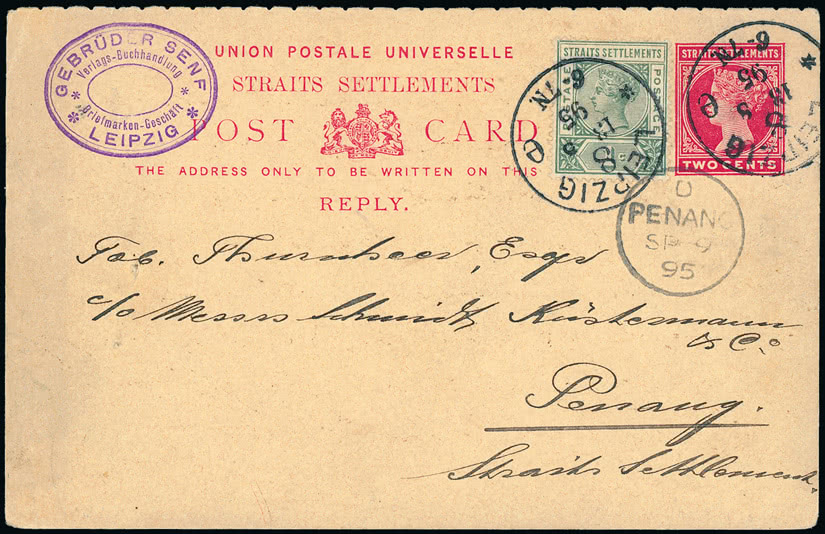 GEBRÜDER SENF
Verlags-Buchhandlung
Briefmarken-Geschäft
* LEIPZIG *
UNION POSTALE UNIVERSELLE
STRAITS SETTLEMENTS
POST CARD
THE ADDRESS ONLY TO BE WRITTEN ON THIS
REPLY.
STRAITS SETTLEMENTS
POSTAGE
POSTAGE
STRAITS SETTLEMENTS
TWO CENTS
* LEIPZIG
8
95
6-7N.
* LEIPZIG
8
95
6-7N.
D
PENANG
SP 9
95
Job. Thurnheer, Esqr
c/o Messrs Schmidt Küstermann
& Co.
Penang.
Straits Settlement.